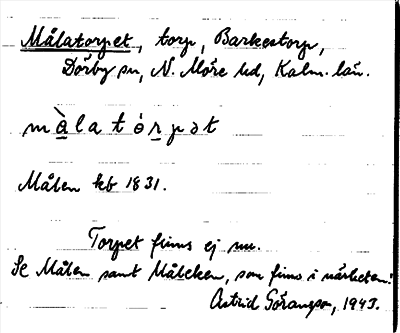 Målatorpet, torp, Barkestorp,
Dörby sn, N. Möre hd, Kalm. län.
màlatórpət
Målen kb 1831.
Torpet finns ej nu.
Se Målen samt Måleken, som finns i närheten!
Astrid Göransson, 1943.